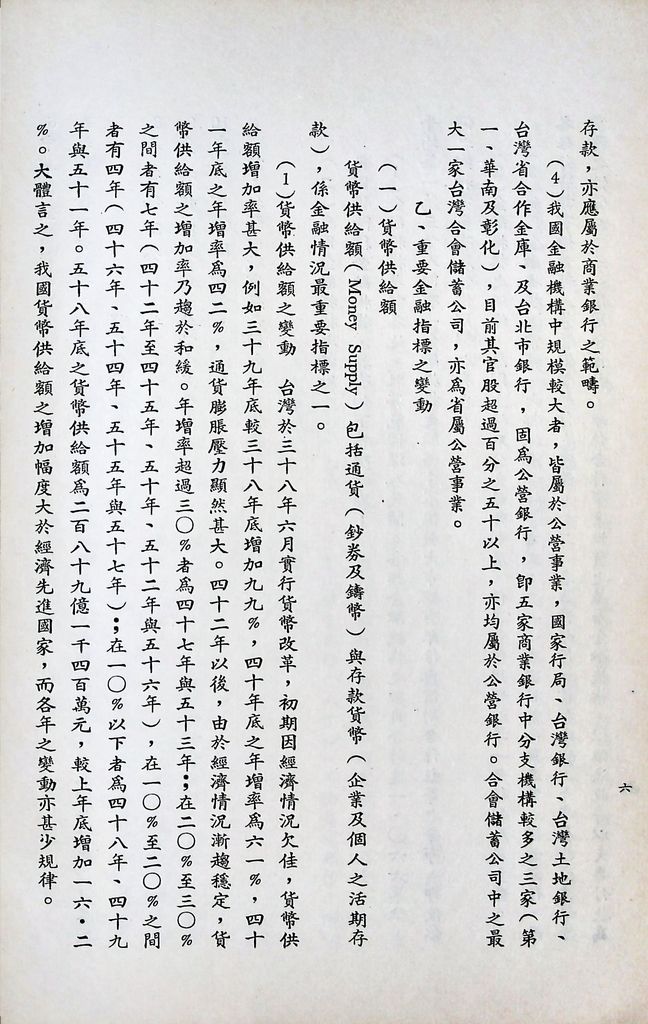 存款，亦應屬於商業銀行之範疇。
（4）我國金融機構中規模較大者，皆屬於公營事業，國家行局、台灣銀行、台灣土地銀行、
台灣省合作金庫、及台北市銀行，固爲公營銀行，卽五家商業銀行中分支機構較多之三家（第
一、華南及彰化），目前其官股超過百分之五十以上，亦均屬於公營銀行。合會儲蓄公司中之最
大一家台灣合會儲蓄公司，亦爲省屬公營事業。
乙、重要金融指標之變動
（一）貨幣供給額
貨幣供給額（Money Supply）包括通貨（鈔券及鑄幣）與存款貨幣（企業及個人之活期存
款），係金融情況最重要指標之一。
（1）貨幣供給額之變動　台灣於三十八年六月實行貨幣改革，初期因經濟情況欠佳，貨幣供
給額增加率甚大，例如三十九年底較三十八年底增加九九％，四十年底之年增率爲六一％，四十
一年底之年增率爲四二％，通貨膨脹壓力顯然甚大。四十二年以後，由於經濟情況漸趨穩定，貨
幣供給額之增加率乃趨於和緩。年增率超過三〇％者爲四十七年與五十三年；在二〇％至三〇％
之間者有七年（四十二年至四十五年、五十年、五十二年與五十六年），在一〇％至二〇％之間
者有四年（四十六年、五十四年、五十五年與五十七年）；在一〇％以下者爲四十八年、四十九
年與五十一年。五十八年底之貨幣供給額爲二百八十九億一千四百萬元，較上年底增加一六・二
％。大體言之，我國貨幣供給額之增加幅度大於經濟先進國家，而各年之變動亦甚少規律。
六